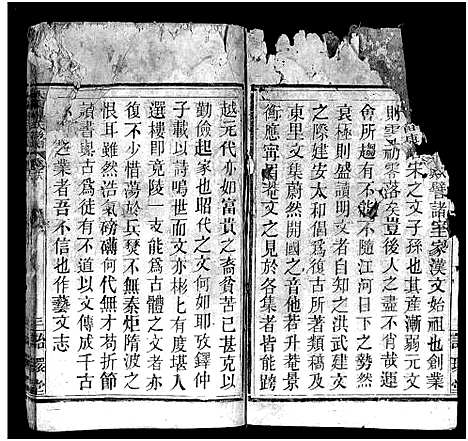 譬諸至家漢文始祖也創業
宋之文子孫也其産漸弱元文
則雲初零落矣豈後人之盡不肖哉遲
會所趨有不能不隨江河日下之勢然
哀極則盛讀明文者自知之洪武建文
之際建安太和倡爲復古所著類稿及
東里文集蔚然開國之音他若升菴景
衡應甯甫菴文之見於各集者皆能方
越元代亦如富貴之裔貧苦已甚克以
勤儉起家也昭代之文何如耶攷鑄仲
子載以詩鳴世而文亦彬七有度堪入
選樓即竟陵一支能爲古體之文者亦
復不少惜蕩於兵燹不無秦炬隋波之
恨耳雖然浩氣磅礴何代無才苟折節
讀書與古爲徒有不道以文傳成千古
之業者吾不信也作藝文志
三
詒瑗堂